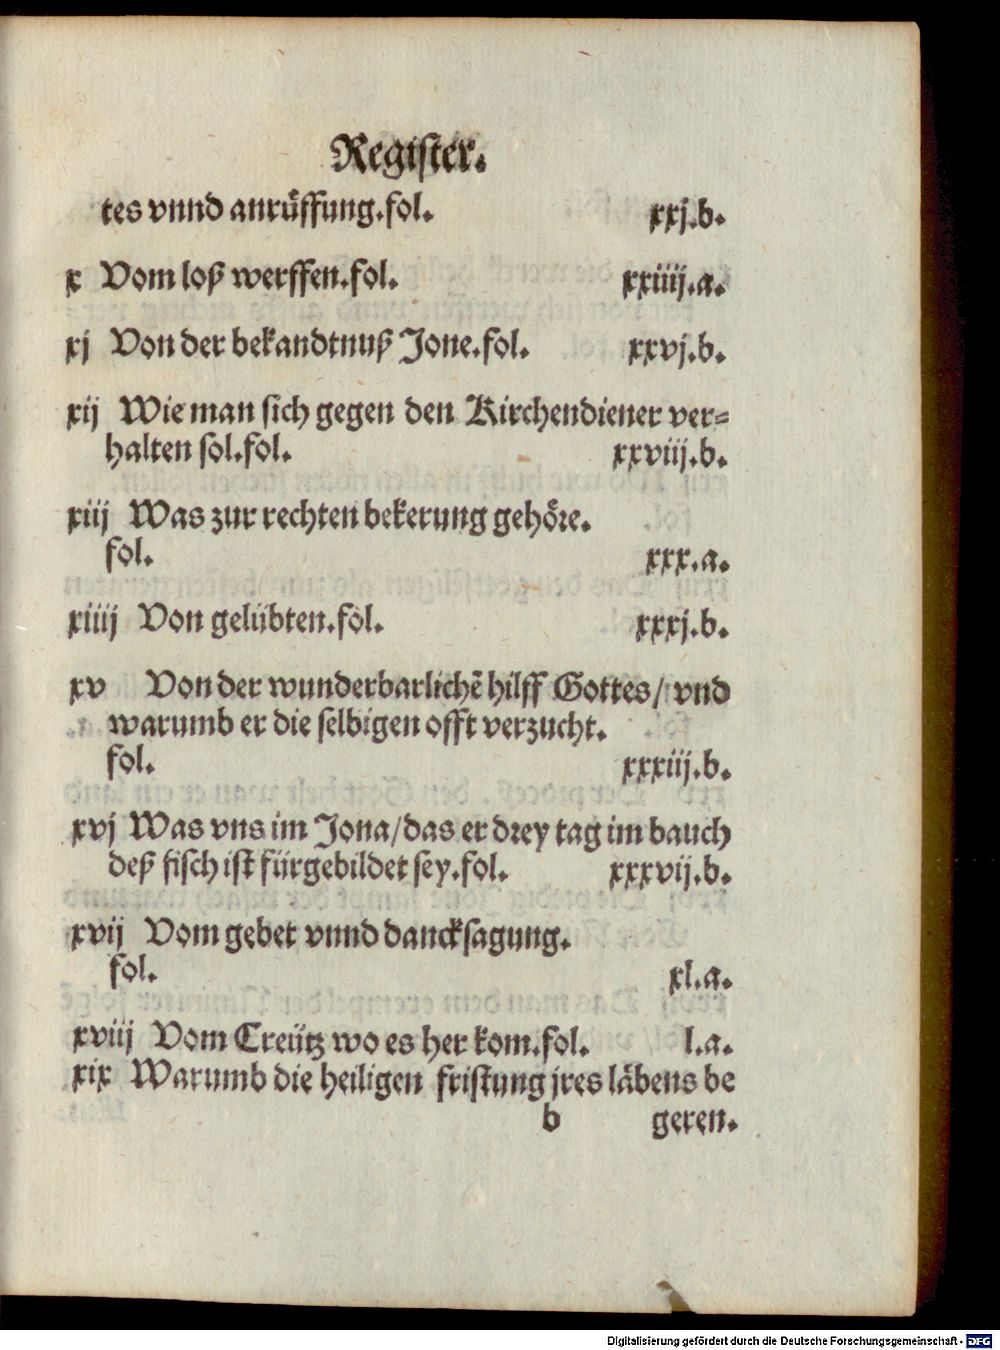 Register.
tes vnnd anrůffung.fol. xxj.b.
x Vom loß werffen.fol. xxiiij.a.
xj Von der bekandtnuß Jone.fol. xxvj.b.
xij Wie man sich gegen den Kirchendiener ver=
halten sol.fol. xxviij.b.
xiij Was zur rechten bekerung gehöre.
fol. xxx.a.
xiiij Von gelübten.fol. xxxj.b.
xv Von der wunderbarlichẽ hilff Gottes/ vnd
warumb er die selbigen offt verzucht.
fol. xxxiij.b.
xvj Was vns im Jona/das er drey tag im bauch
deß fisch ist fürgebildet sey.fol. xxxvij.b.
xvij Vom gebet vnnd dancksagung.
fol. xl.a.
xviij Vom Creütz wo es her kom.fol. l.a.
xix Warumb die heiligen fristung jres läbens be
b geren.
Digitalisierung gefördert durch die Deutsche Forschungsgemeinschaft - DFG